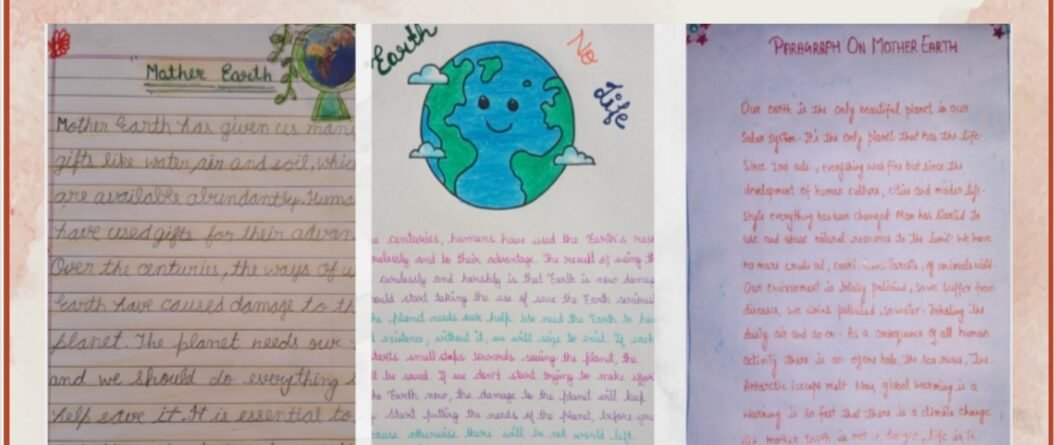 Mather Earth
Mother Earth has given us man
gifts like water, air and soil, whic
are available abundantly. Huma
have used gifts for their advan
Over the centuries, the ways of u
Earth have caused damage to th
planet. The planet needs our
and we should do everything
help save it. It is essential to
Earth
No
Life
centuries, humans have used the Earth's reso
and to their advantage. The result of using th
carelessly and harshly is that Earth is now damag
start taking the use of save the Earth seriousl
planet needs our help. We need the Earth to hav
existence, without it, we will seize to exist. If each
starts small steps towards saving the planet, the
be saved. If we don't start trying to make effor
Earth now, the damage to the planet will keep
start putting the needs of the planet, before you
cause otherwise there will be not world left.
PARAGRAPH ON MOTHER EARTH
Our earth is the only beautiful planet in our
Solar system. It's the only planet that has the life.
Since 200 everything was fine but since the
development of human culture, cities and modern life-
style everything has been changed. Man has started to
use and abuse natural resources to the limit. We have
no more crude oil, forests, of animals
Our Environment is totally polluted, so we suffer from
diseases, we drink polluted water. Inhaling the
dusty air and so on. As a consequence of all human
activity there is an ozone hole, the sea rises, The
Antarctic icecaps melt Now, global warming is a
Warning is so fast that there is a climate change
mother Earth is not in danger, life is in